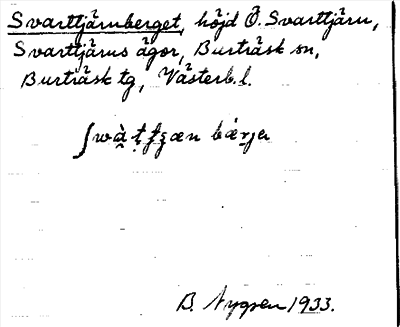 Svarttjärnberget, höjd Ö. Svarttjärn,
Svarttjärns ägor, Burträsk sn,
Burträsk tg, Västerb. l.
B. Nygren 1933.